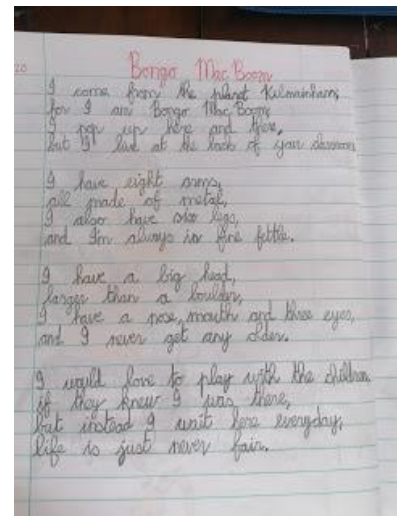 20
Bongo Mac Boom
I come from the planet Kulmainham,
for I am Bongo Mac Boom,
I pop up here and there,
but I live at the back of your classroom.
I have eight arms,
all made of metal,
I also have six legs,
and I'm always in fine fettle.
I have a big head,
larger than a boulder,
I have a nose, mouth and three eyes,
and I never get any older.
I would love to play with the children,
if they knew I was there,
but instead I wait here everyday,
life is just never fair.